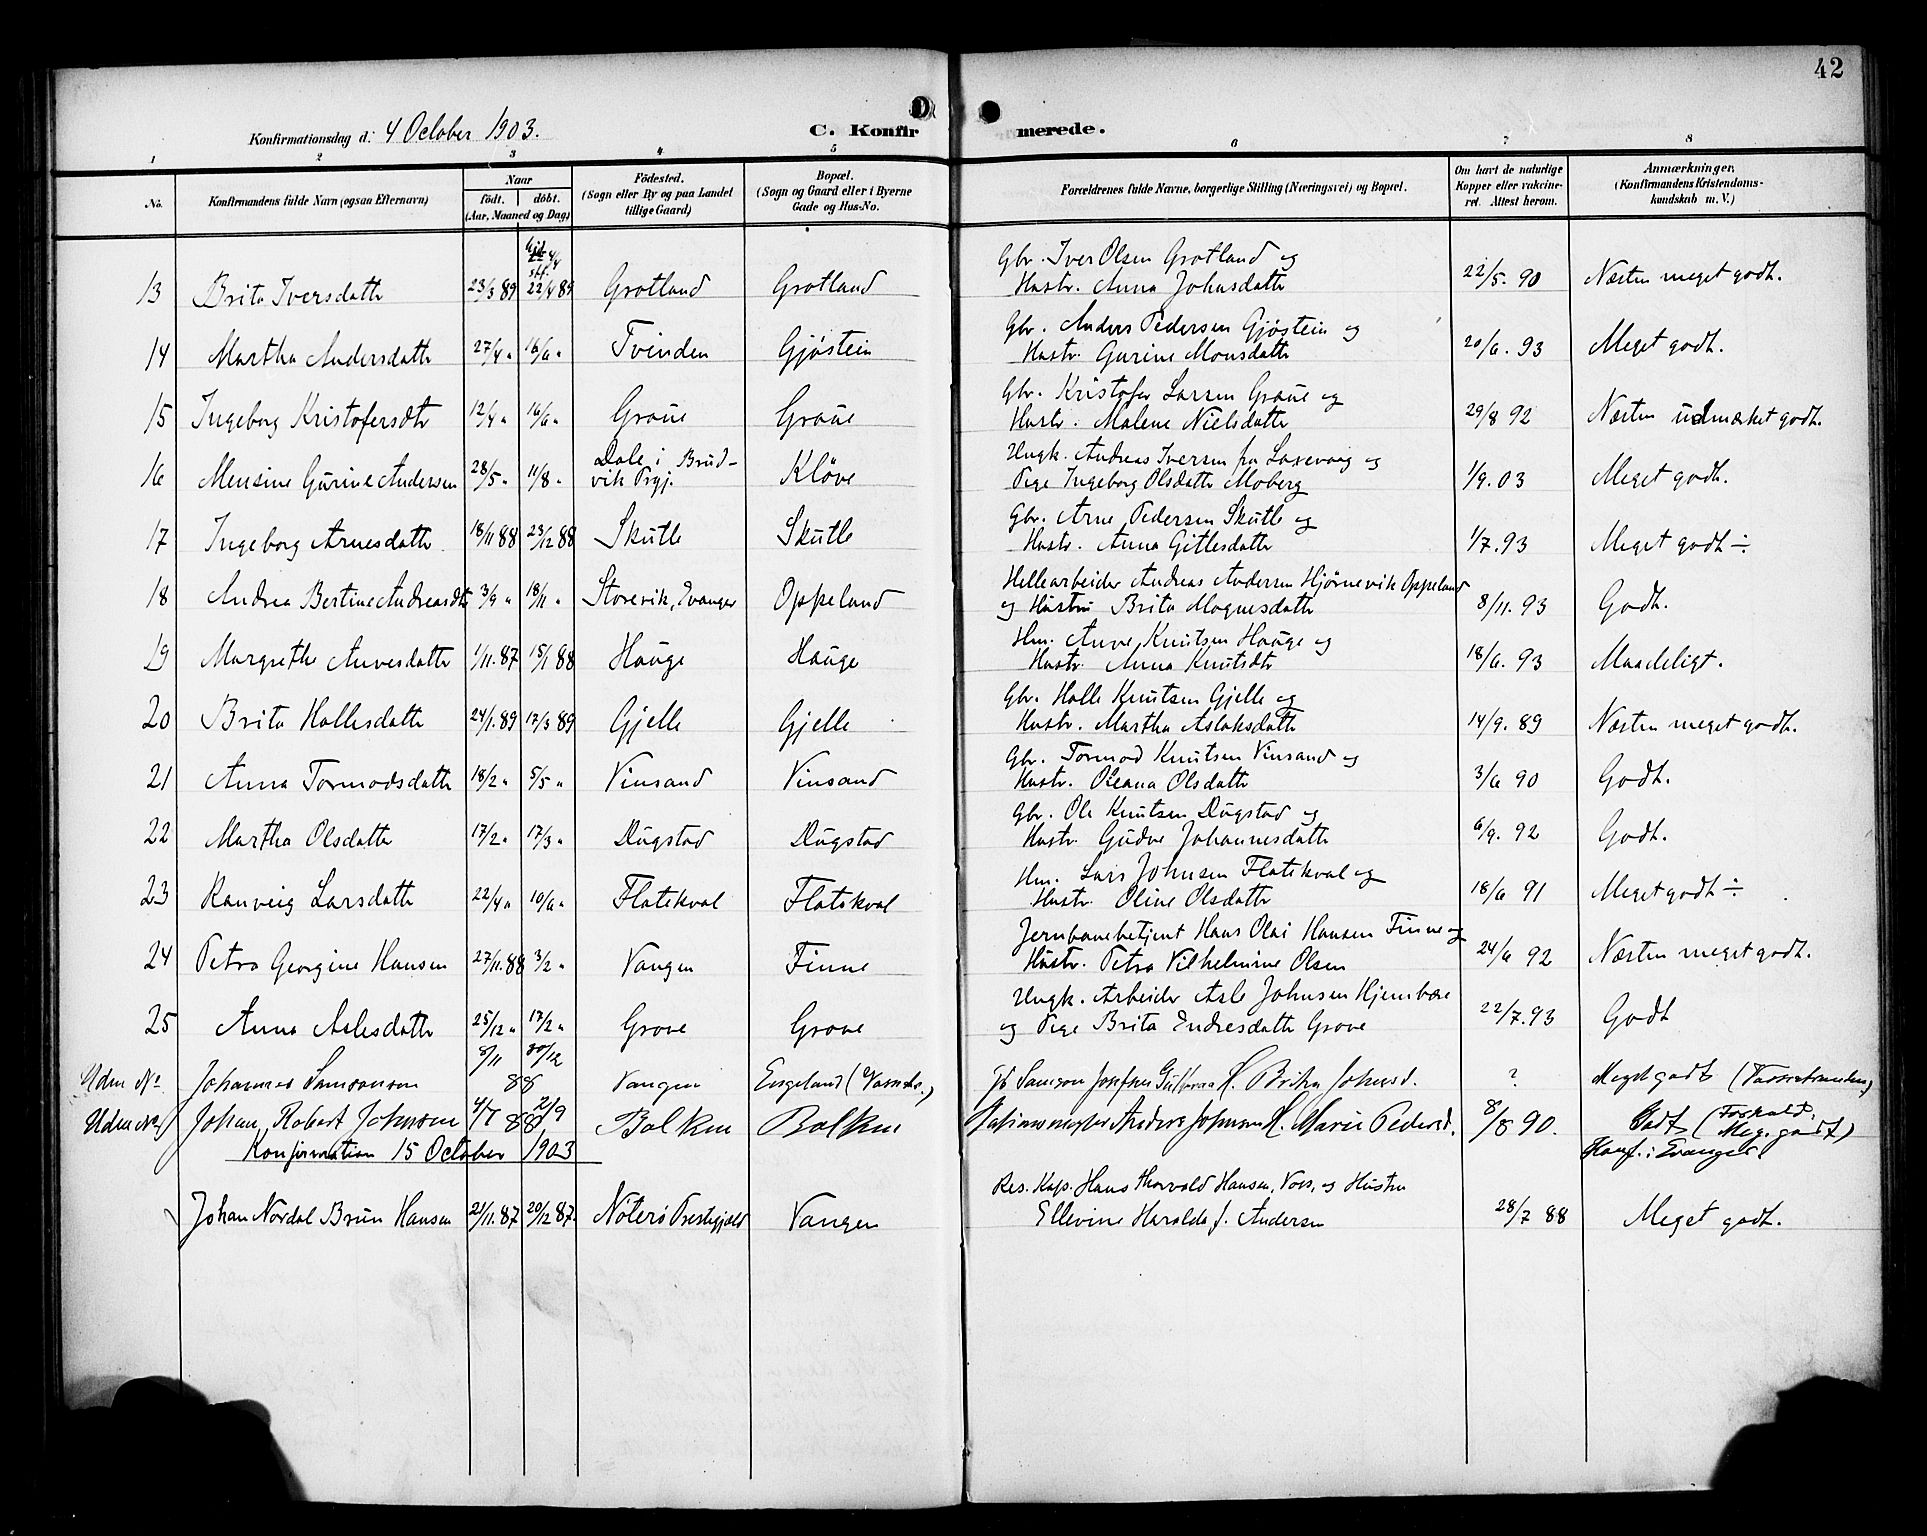 42
D
Konfirmationsdag d: 4 October 1903.
C. Konfirmerede.
1 2 3 4 5 6 7 8
No. Konfirmandens fulde Navn (ogsaa Efternavn) Naar født. døbt. (Aar, Maaned og Dag) Fødested. (Sogn eller By og paa Landet tillige Gaard) Bopæl. (Sogn og Gaard eller i Byerne Gade og Hus-No. Forældrenes fulde Navne, borgerlige Stilling (Næringsvei) og Bopæl. Om havt de naturlige Kopper eller vakcineret. Attest herom. Anmærkninger, (Konfirmandens Kristendomskundskab m. V.)
13 Brita Iversdatter 23/3 89 4/4 stf. 22/4 89 Grotland Grotland Gbr. Iver Olsen Grotland og
Hustr. Anna Johnsdatter 22/5. 90 Næsten meget godt.
14 Martha Andersdatter 27/4 " 16/6 " Tvinden Gjøstein Gbr. Anders Pedersen Gjøstein og
Hustr. Gurine Monsdatter 20/6. 93 Meget godt.
15 Ingeborg Kristofersdtr 12/4 " 16/6 " Graue Graue Gbr. Kristofer Larsen Graue og
Hustr. Malene Nielsdatter 29/8 92 Næsten udmærket godt.
16 Mensine Gurine Andersen 28/5 " 11/8 " Dale i Brudvik Prgj. Kløve Ungk. Andreas Iversen fra Laxevaag og
Pige Ingeborg Olsdatter Moberg 1/9. 03 Meget godt.
17 Ingeborg Arnesdatter 18/11 88 23/12 88 Skutle Skutle Gbr. Arne Pedersen Skutle og
Hustr. Anna Gitlesdatter 1/7. 93 Meget godt ÷.
18 Andrea Bertine Andreasdtr 3/9 " 18/11 " Storevik, Evanger Oppeland Hellearbeider Andreas Andersen Hjørnevik Oppeland
og Hustru Brita Magnesdatter 8/11. 93 Godt.
19 Margrethe Anvesdatter 1/11. 87 15/1 88 Hauge Hauge Hm. Anve Knutsen Hauge og
Hustr. Anna Knutsdtr 18/6. 93 Maadeligt.
20 Brita Hallesdatter 24/1. 89 17/3 89 Gjelle Gjelle Gbr. Halle Knutsen Gjelle og
Hustr. Martha Aslaksdatter 14/9. 89 Næsten meget godt.
21 Anna Tormodsdatter 18/2 " 5/5 " Vinsand Vinsand Gbr. Tormod Knutsen Vinsand og
Hustr. Oleana Olsdatter 3/6 90 Godt.
22 Martha Olsdatter 17/2 " 17/3 " Dugstad Dugstad Gbr. Ole Knutsen Dugstad og
Hustr. Gudve Johannesdatter 6/9. 92 Godt.
23 Ranveig Larsdatter 22/4 " 10/6 " Flatekval Flatekval Hm. Lars Johnsen Flatekval og
Hustr. Oline Olsdatter 18/6 91 Meget godt ÷
24 Petra Georgine Hansen 27/11. 88 3/2 " Vangen Finne Jernbanebetjent Hans Olai Hansen Finne og
Hustr. Petra Vilhelmine Olsen 24/6 92 Næsten meget godt.
25 Anna Aslesdatter 25/12 " 17/2 " Grove Grove Ungk. Arbeider Asle Johnsen Hjembæe
og Pige Brita Endresdatter Grove 22/7. 93 Godt
Uden No. Johannes Samsonsen 8/11 30/12 88 Vangen Engeland Samson Josefsen H. Brita Johnsd. ? Meget godt
Uden No. Johan Robert Johnson 4/7 2/9 88 Bolken Bolken Stationsmester Anders Johnson H. Marie Pedersd. 8/8 90. Godt (Forhold. Meg. godt)
Konf. i Evanger
Konfirmation 15 October 1903
Johan Nordal Brun Hansen 21/11. 87 20/12 87. Nøterø Prestegjeld Vangen Res. Kap. Hans Thorvald Hansen, Voss, og Hustru
Ellevine Haralda f. Andersen 28/7 88 Meget godt.